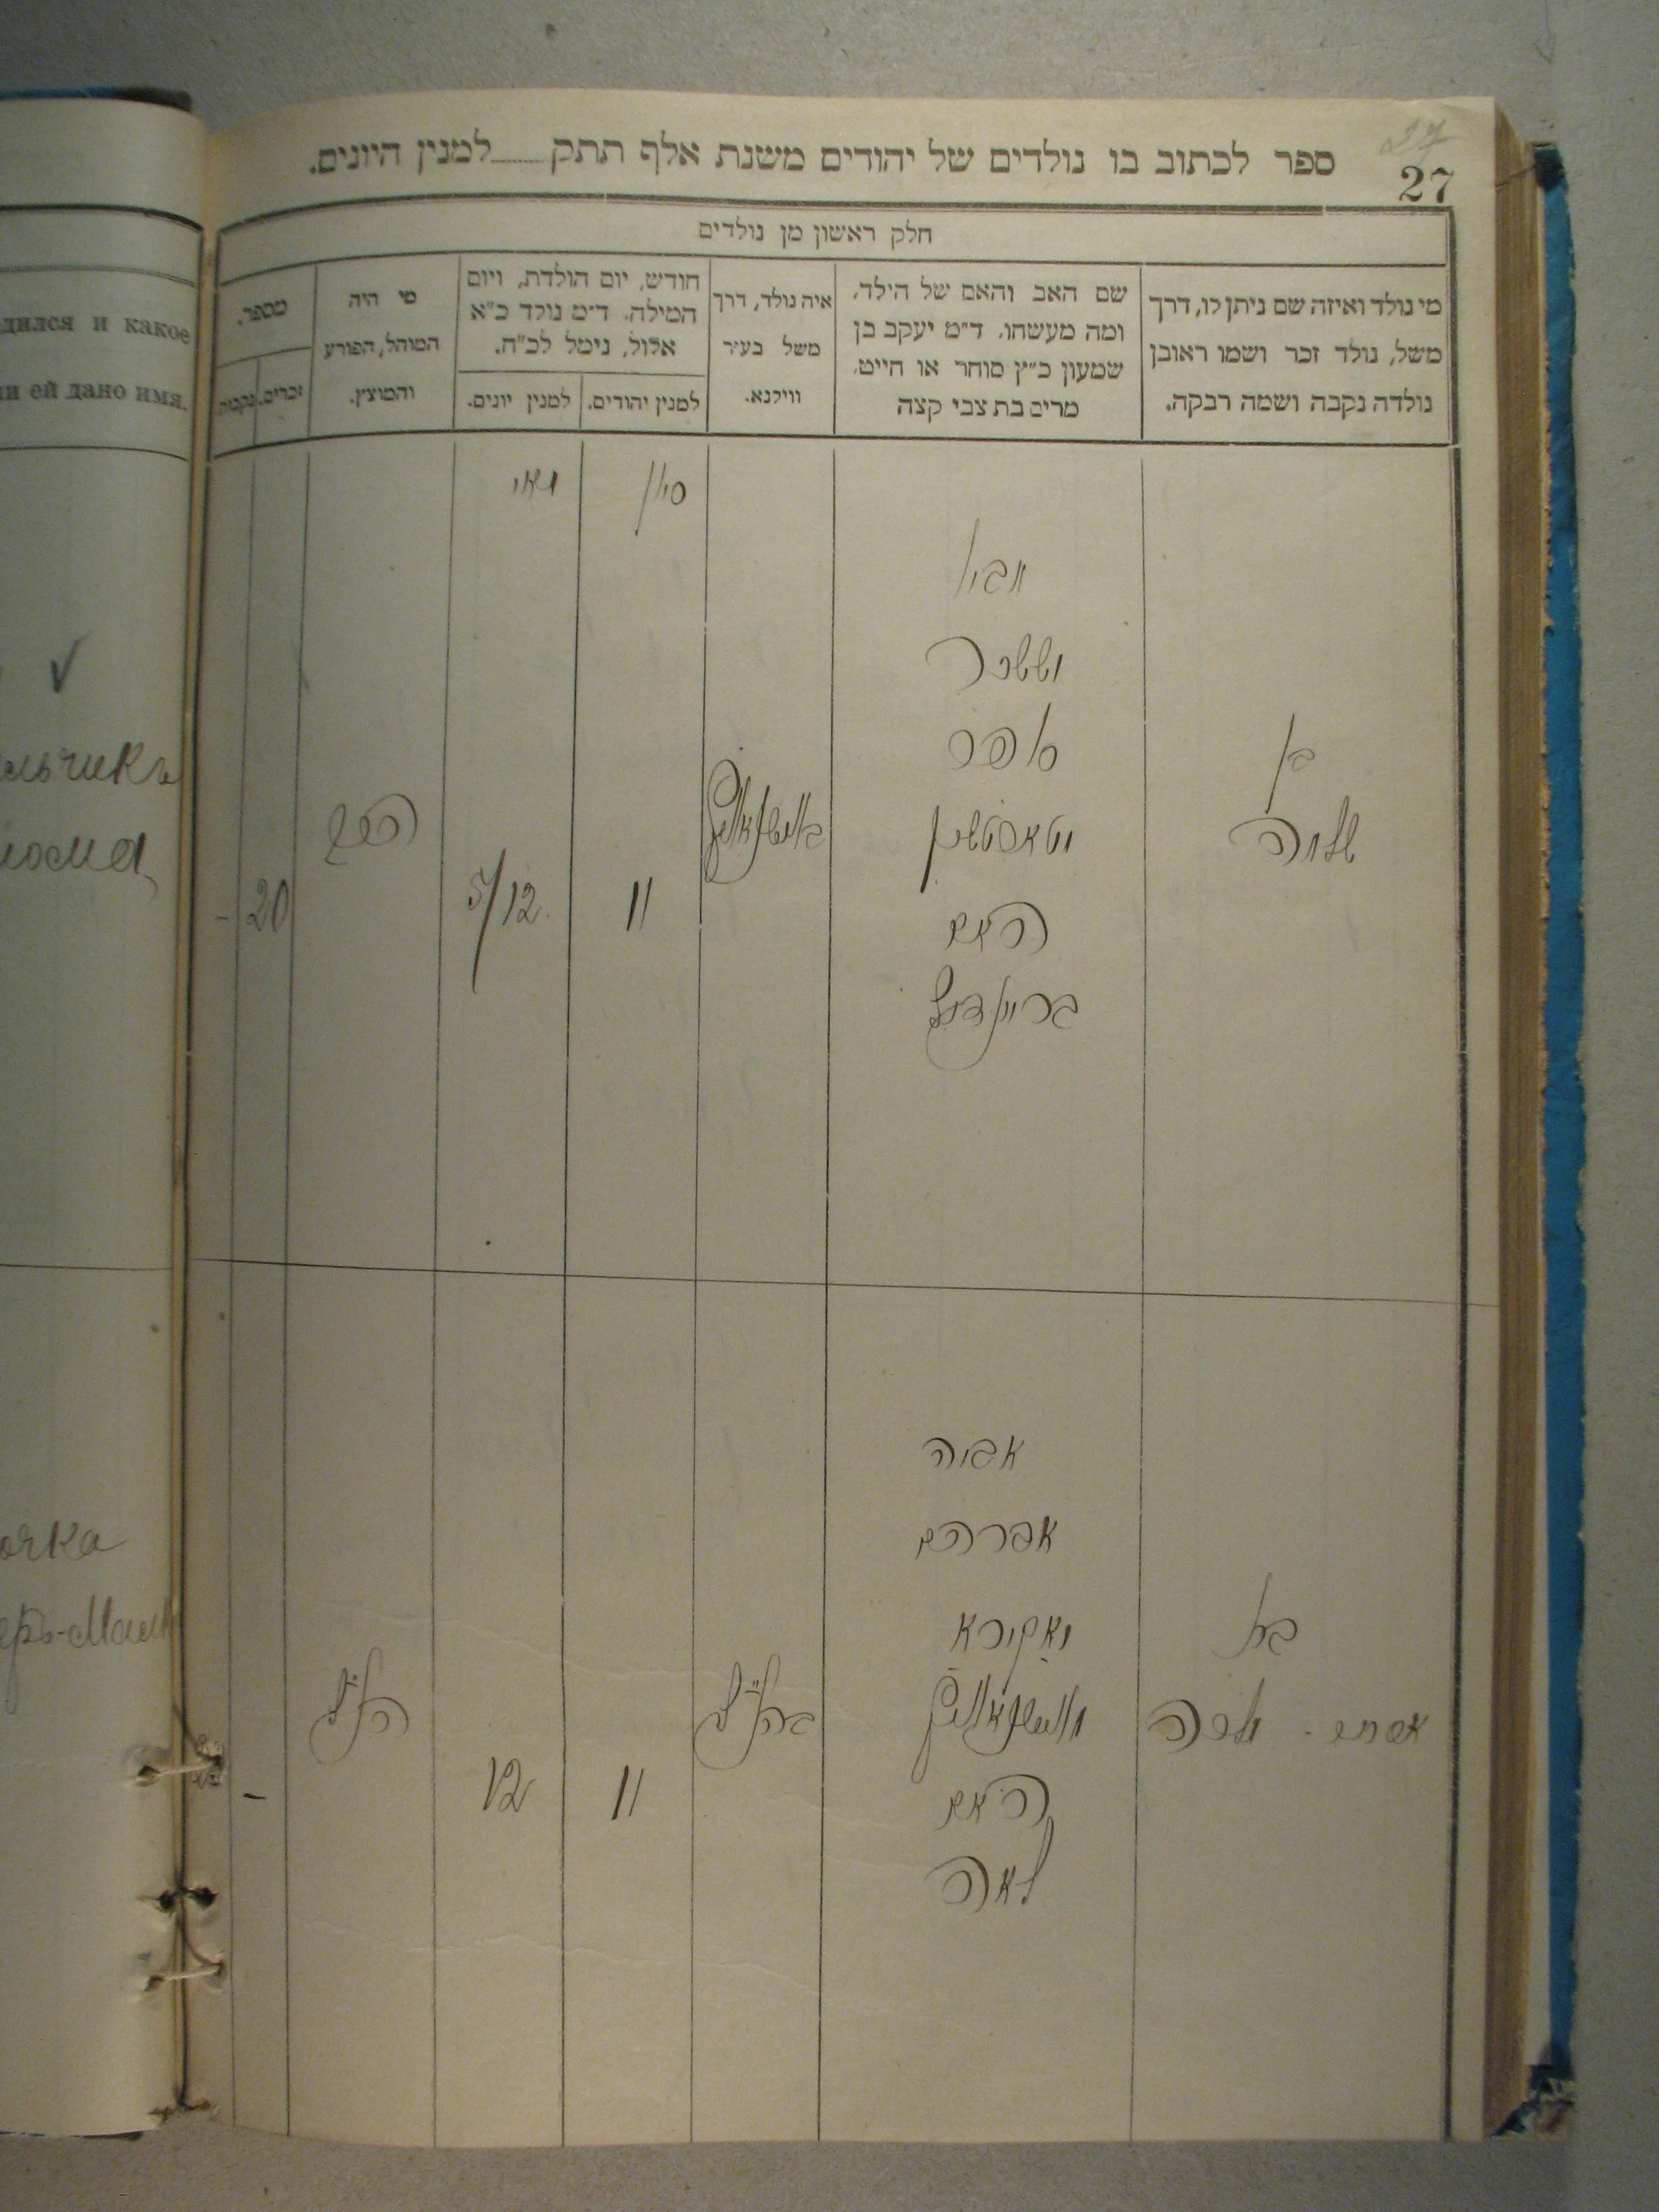 27
27
ספר לכתוב בו נולדים של יהודים משנת אלף תתק למנין היונים.
חלק ראשון מן נולדים
מי נולד ואיזה שם ניתן לו, דרך
משל, נולד זכר ושמו ראובן
נולדה נקבה ושמה רבקה.
שם האב והאם של הילד,
ומה מעשהו. ד"מ יעקב בן
שמעון כ"ץ סוחר או חייט.
מרים בת צבי קצה
איה נולד, דרך
משל בעיר
ווילנא.
חודש, יום הולדת, ויום
המילה. ד"מ נולד כ"א
אלול, נימל לכ"ח.
למנין יהודים.
למנין יונים.
מי היה
המוהל, הפורע
והמוצץ.
מספר.
זכרים.
נקבות
סיון
מאי
יששכר
בן
שלמה
האם
בריינדיל
11
5/12
20
-
אביה
אברהם
בת
אסתר - מלכה
האם
לאה
הנ"ל
בהנ"ל
11
12
-
дился и какое
ли ей дано имя.
льчикъ
очка